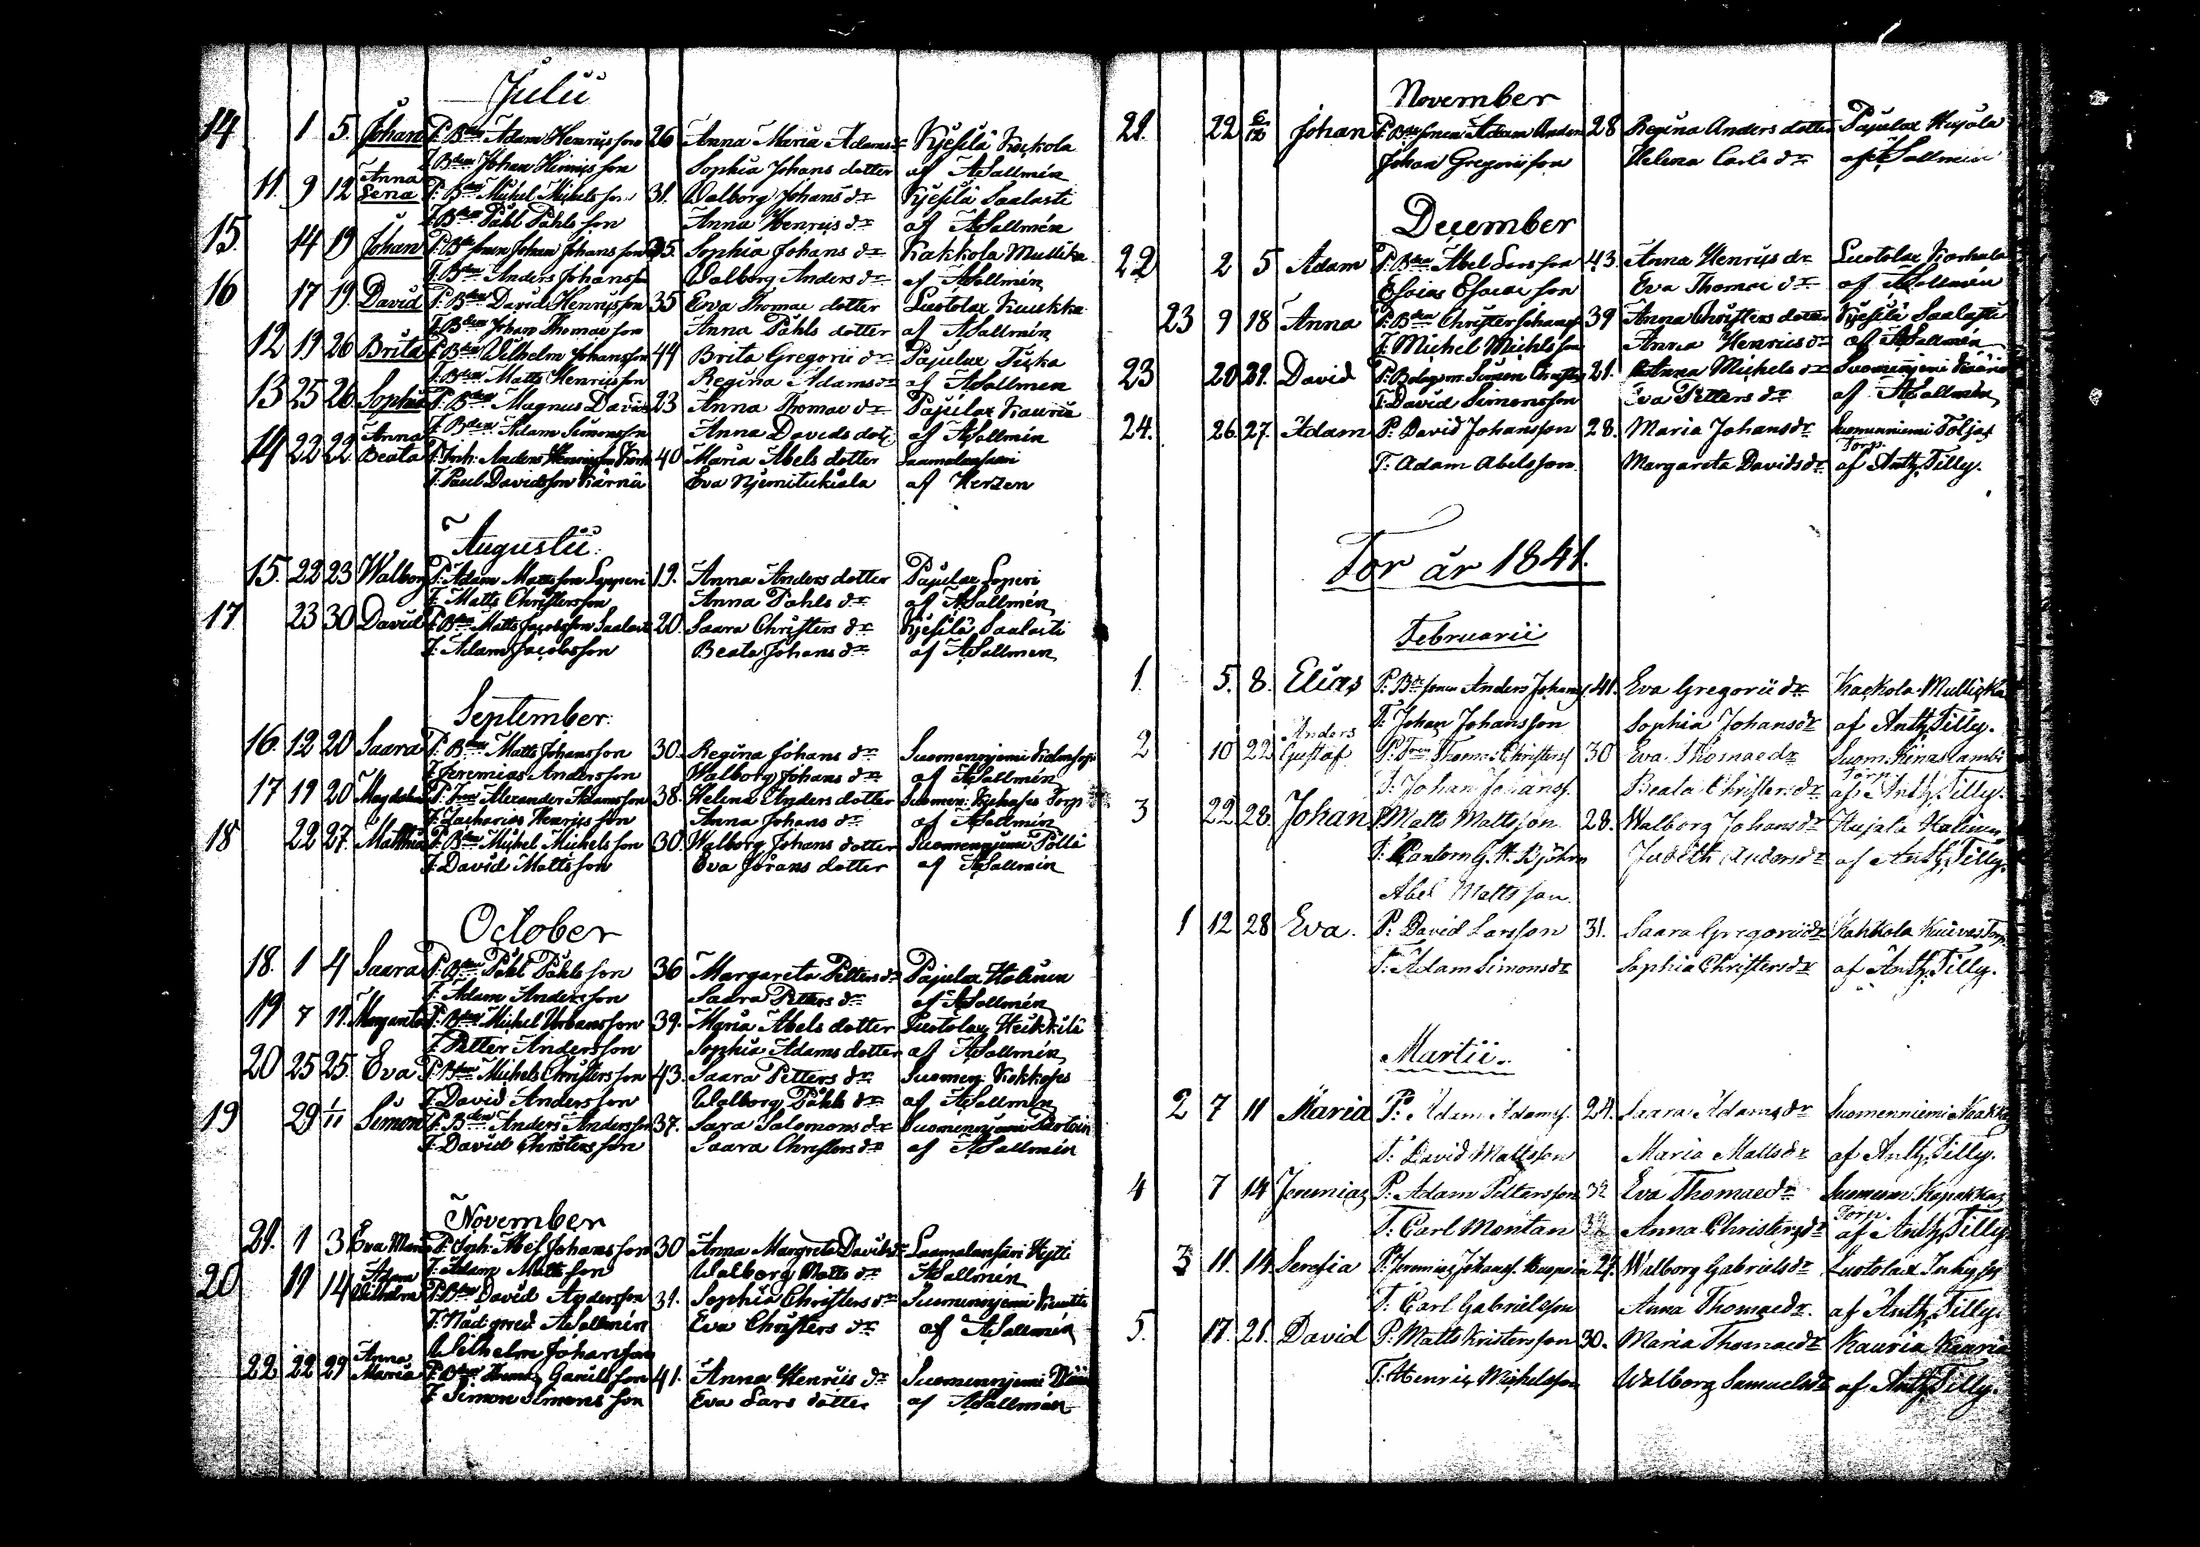 Julii
14 1 5. Johan P. Bden Adam Henrijsson 26 Anna Maria Adams dr Kjesilä Kockola
T. Bden Johan Hinrijsson Sophia Johans dotter af ASallmén
11. 9 12 Anna Lena P. Bden Michel Michelsson 31. Walborg Johans dr Kjesilä Saalasti
T. Bden Påhl Påhlsson Anna Henrijs dr af ASallmén
15. 14 19 Johan P. Bde sonen Johan Johansson 25. Sophia Johans dr Kakkola Mullika
T. Bden Anders Johansson Walborg Anders dr af ASallmén
16 17 19. David P. Bden David Henrijsson 35 Eva Thomae dotter Luotolax Kuukka
T. Bden Johan Thomae son Anna Påhls dotter af ASallmén
12 19 26 Brita P. Bden Wilhelm Johansson 44 Brita Gregorii dr Pajulax Sicka
T. Bden Matts Henrijsson Regina Adams dr af ASallmén
13 25 26. Sophia P. Bden Magnus Davids 23 Anna Thomae dr Pajulax Kauria
T. Bden Adam Simonsson Anna Davids dott af ASallmén
14 22 22 Anna Beata P. Inh: Anders Henrijsson 40 Maria Abels dotter Saamalansaari
T. Paul Davidsson Kärnä Eva Njemitukiala af Herzen
Augustii.
15. 22 23 Walborg P. Adam Mattsson Lopperi 19. Anna Anders dotter Pajulax Loperi
T. Matts Christersson Anna Påhls dr af ASallmén
17 23 30 David P. Bden Matts Jacobsson Saalasti 20. Saara Christers dr Kjesilä Saalasti
T. Adam Jacobsson Beata Johans dr af ASallmén
September.
16. 12 20 Saara P. Bden Matts Johansson 30. Regina Johans dr Suomennjemi
T. Jeremias Andersson Walborg Johans dr af ASallmén
17 19 20 Magdalena P. Alexander Adamsson 38. Helena Anders dotter Suomen: Torp
T. Zacharias Henrijsson Anna Johans dr af ASallmén
18 22 27. Matthias P. Bden Michel Michelsson 30. Walborg Johans dotter Suomennjemi Pölla
T. David Mattsson Eva Jörans dotter af ASallmén
October
18. 1 4 Saara P. Bden Påhl Påhlsson 36 Margareta Petters dr Pajulax Halinen
T. Adam Andersson Saara Petters dr af ASallmén
19 7 11. Margareta P. Bden Michel Urbansson 39. Maria Abels dotter Luotolax Heikkilä
T. Petter Andersson Sophia Adams dotter af ASallmén
20 25 25. Eva P. Bden Michels Christersson 43. Saara Petters dr Suomen: Kokkoses
T. David Andersson Walborg Påhls dr af ASallmén
19 29 1/11 Simon P. Bden Anders Andersson 37. Sara Salomons dr Suomennjemi Partain
T. David Christersson Saara Christers dr af ASallmén
November
21. 1 3 Eva Maria P. Inh: Abel Johansson 30 Anna Margreta Davids dr Saamalansaari Hytti
T. Adam Mattsson Walborg Matts dr ASallmén
20 11 14 Adam Wilhelm P. Bden David Andersson 31. Sophia Christers dr Suomennjemi
T. Nåd. pred. ASallmén Eva Christers dr af ASallmén
Wilhelm Johansson
22 22 29 Anna Maria P. Bden Gabrielsson 41. Anna Henrijs dr Suomennjemi
T. Simon Simonsson Eva Lars dotter af ASallmén
November
21. 22 6/12 Johan P. Bdesonen Adam Anders 28 Regina Anders dotter Pajulax Hujala
Johan Gregoriisson Helena Carls dr af ASallmén
December
22 2 5 Adam P. Bden Abel Larsson 43. Anna Henrijs dr Luotolax Korhola
Esaias Esaiae son Eva Thomae dr af ASallmén
23 9 18 Anna P. Bden Christer Johanss 39 Anna Christers dotter Kjesilä Saalasti
T. Michel Michelsson Anna Henries dr af ASallmén
23 20 21. David P. Bolagsm. Simon Christers 21. Anna Michels dr Suomennjemi
T. David Simonsson Eva Petters dr af ASallmén
24. 26. 27. Adam P. David Johansson 28. Maria Johans dr Suomenniemi Töljas
Torp.
T. Adam Abelsson Margareta Davids dr af Anth. Tilly.
För år 1841.
Februarii
1. 5. 8. Elias P. Bdesonen Anders Johanss. 41. Eva Gregorii dr Kackola Mullicka
T. Johan Johansson Sophia Johans dr af Anth. Tilly.
2 10 22 Anders Gustaf P. Thomas Christerss 30 Eva Thomae dr Suom. Kinaslambi
Torp
T. Johan Johanss. Beata Christers dr af Anth. Tilly.
3 22. 28. Johan P. Matts Mattsson. 28. Walborg Johans dr Hujala Halinen
T. Cantorn G. H. Björn Judith Anders dr af Anth. Tilly.
Abel Mattsson.
1 12 28 Eva. P. David Larsson 31. Saara Gregorii dr Kakkola Torp
T. Adam Simons dr Sophia Christers dr af Anth. Tilly.
Martii.
2 7 11 Maria P. Adam Adamss. 24. Saara Adams dr Suomenniemi
T. David Mattsson Maria Matts dr af Anth. Tilly.
4 7 14 Jeremias P. Adam Pettersson 32 Eva Thomae dr Suomenn.
Torp.
T. Carl Montan 32 Anna Christers dr af Anth. Tilly
3 11. 14. Serefia P. Jeremias Johanss. 24. Walborg Gabriels dr Luotolax
T. Carl Gabrielsson Anna Thomae dr. af Anth. Tilly.
5. 17. 21. David P. Matts Kristersson 30. Maria Thomae dr Kauria Kauria
T. Henric Michelsson Walborg Samuels dr af Anth. Tilly.